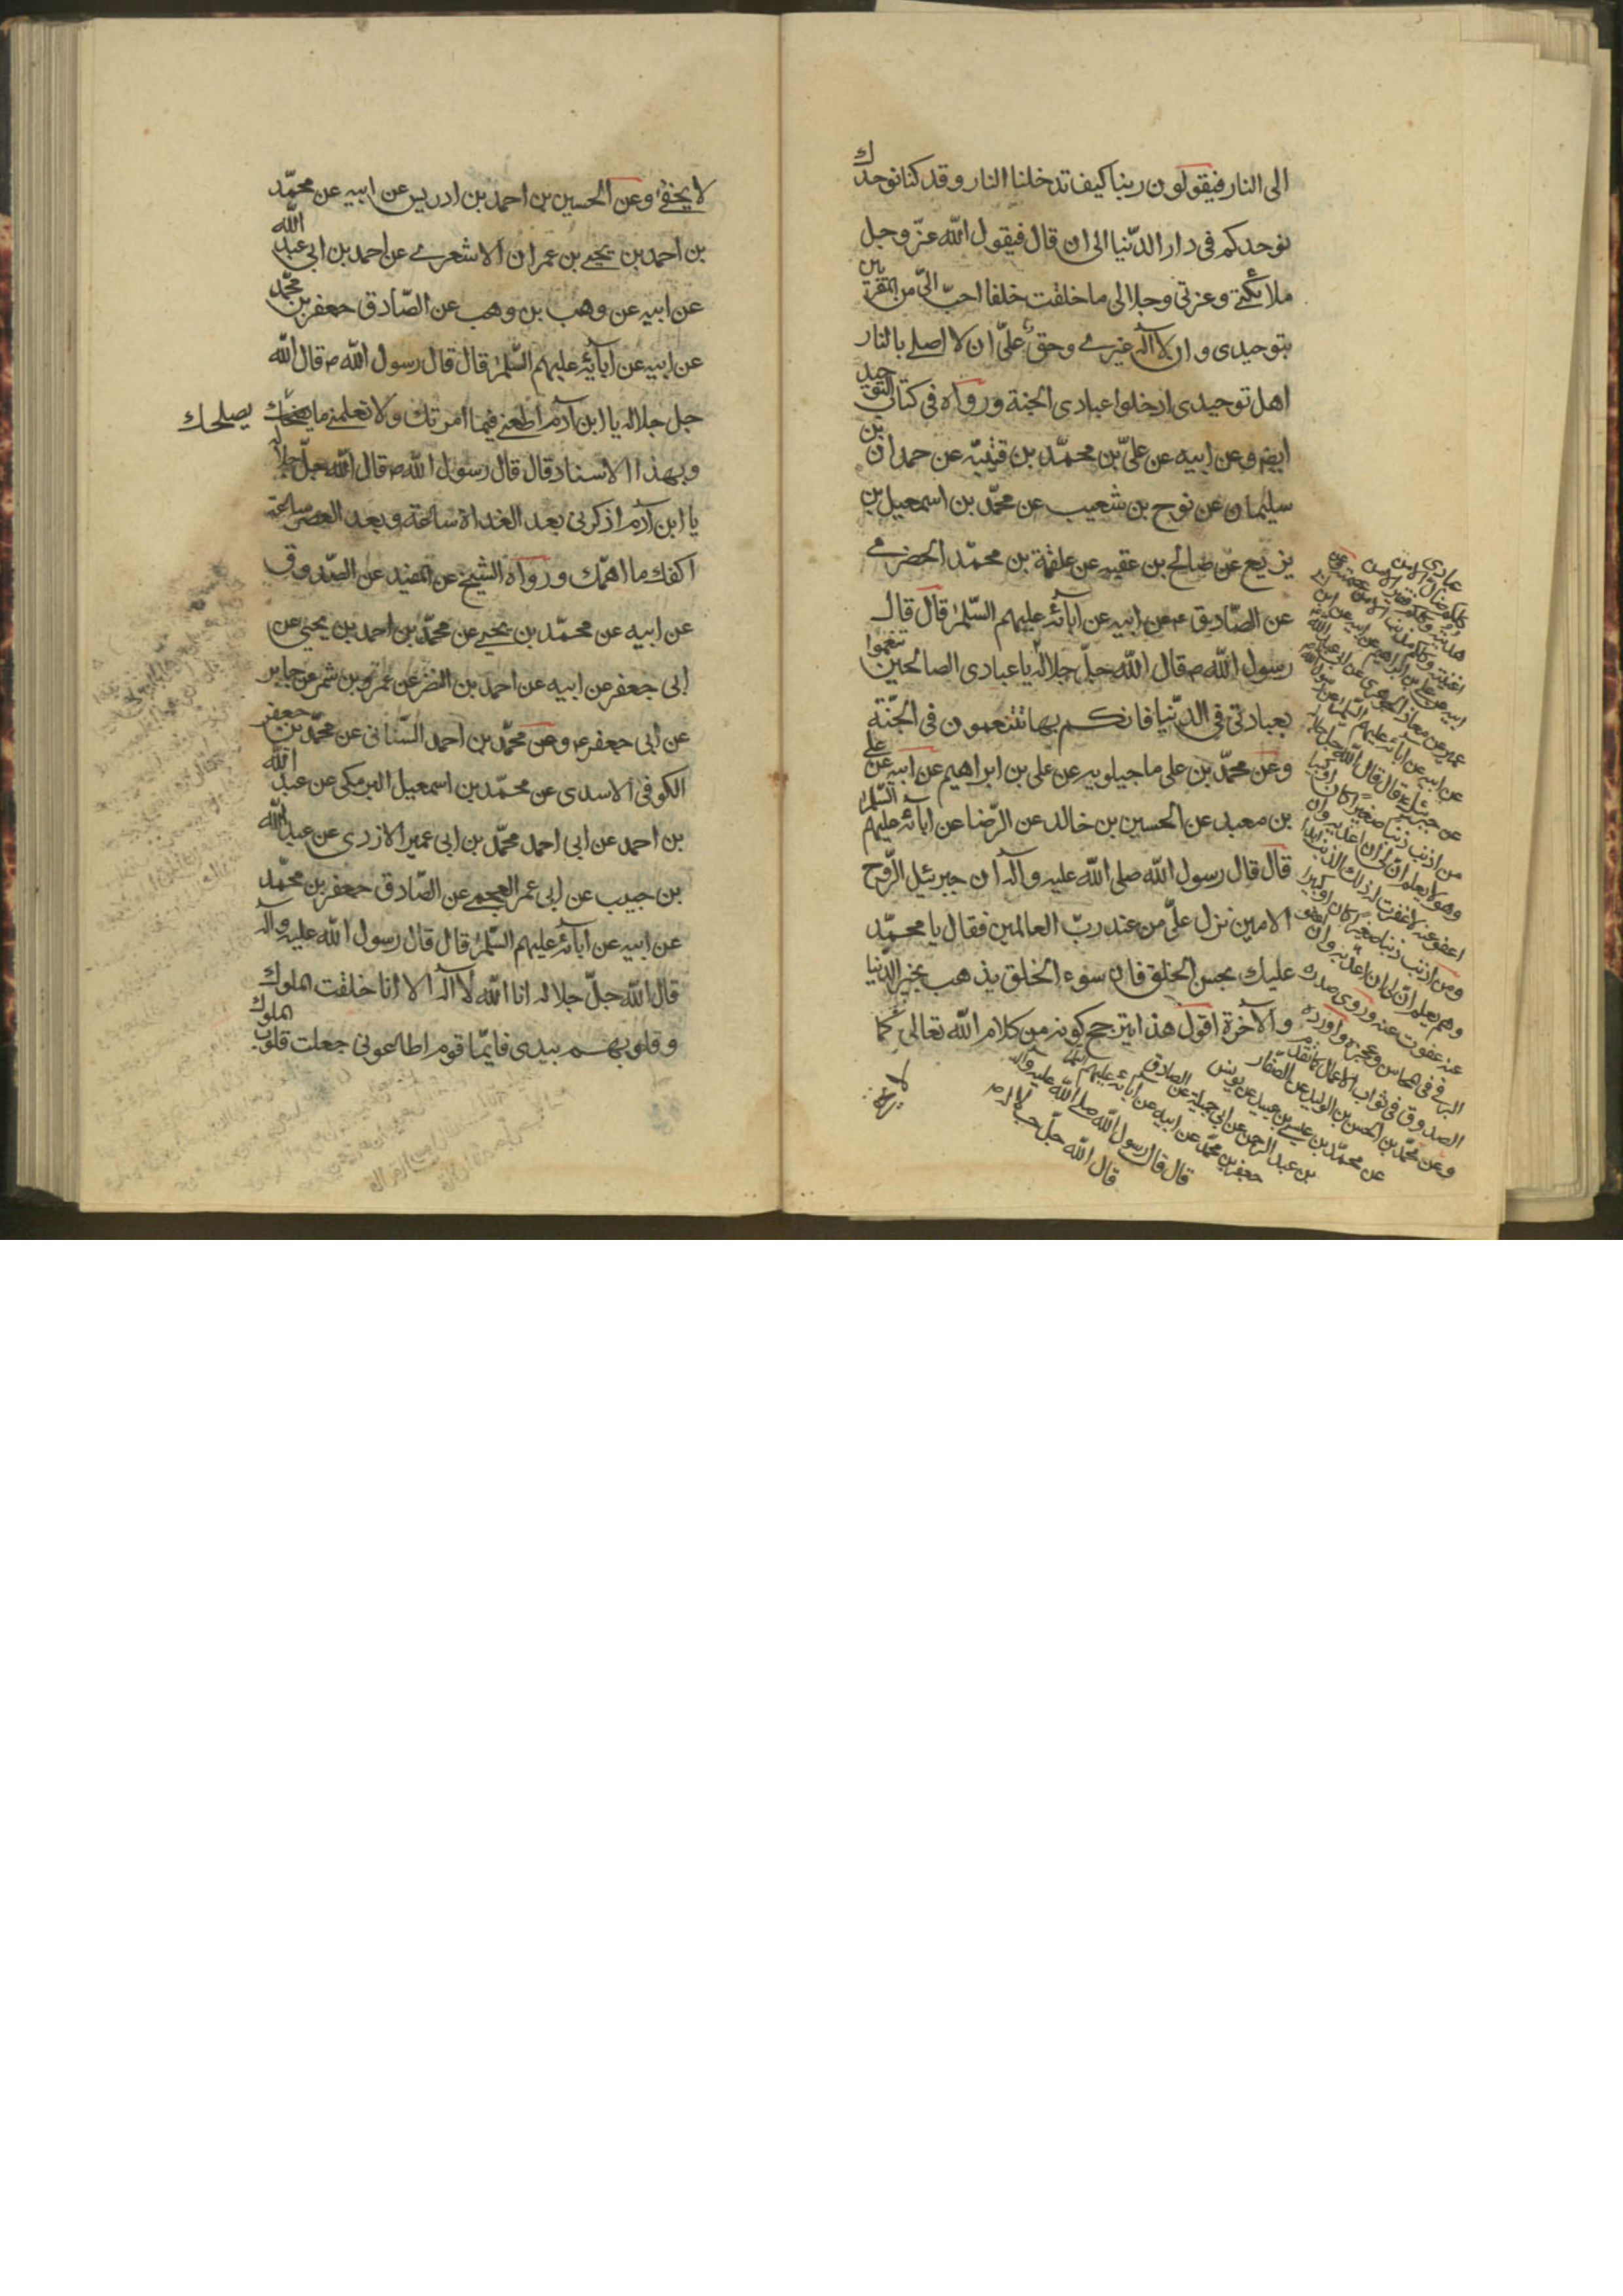 الى النار فيقولون ربنا كيف تدخلنا النار وقد كنا نوحدك
نوحدكم فى دار الدّنيا الى ان قال فيقول اللّه عزّ وجل
ملائكتى وعزتى وجلالى ما خلقت خلقا احبّ الىّ من المقرّين
بتوحيدى وان لا آله غيرى وحقّ علىّ ان لا اصلى بالنار
اهل توحيدى ادخلوا عبادى الجنة ورواه فى كتاب التوحيد
ايضا وعن ابيه عن علىّ بن محمّد بن قتيبة عن حمدان بن
سليمان عن نوح بن شعيب عن محمّد بن اسمعيل بن
بزيع عن صالح بن عقبه عن علقمة بن محمّد الحضرمى
عن الصّادق ع عن ابيه عن آبائه عليهم السّلم قال قال
رسول اللّه ص قال اللّه جلّ جلاله يا عبادى الصالحين تنعموا
بعبادتى فى الدّنيا فانكم بها تتنعمون فى الجنّة
وعن محمّد بن على ماجيلويه عن على بن ابراهيم عن ابيه عن على
بن معبد عن الحسين بن خالد عن الرّضا عن ابائه عليهم السّلم
قال قال رسول اللّه صلى اللّه عليه وآله ان جبرئيل الرّوح
الامين نزل علىّ من عند ربّ العالمين فقال يا محمّد
عليك بحسن الخلق فان سوء الخلق يذهب بخير الدّنيا
والآخرة اقول هذا يترجح كونه من كلام اللّه تعالى كما
عبادى
كلكم ضالّ الا من
هديته وكلكم فقير الا من
اغنيته وكلكم مذنب الا من عصمته وعن
ابيه عن على بن ابراهيم عن ابيه عن ابن ابى
عمير عن معاذ الجوهرى عن ابى عبد اللّه
عن ابيه عن ابائه عليهم السّلم عن رسول اللّه
عن جبرئيل ع قال قال اللّه جل جلاله
من اذنب ذنبا صغيرا كان او كبيرا
وهو لا يعلم انّ لى ان اعذبه وان
اعفو عنه لا غفرت له ذلك الذنب ابدا
ومن اذنب ذنبا صغيرا كان او كبيرا
وهو يعلم انّ لى ان اعذّبه وان اعفو
عنه عفوت عنه وروى صدره
البرقى فى المحاسن وعجزه واورده
الصدوق فى ثواب الاعمال كما تقدم
وعن محمّد بن الحسن بن الوليد عن الصّفار
عن محمّد بن عيسى بن عبيد عن يونس
بن عبد الرحمن عن ابى جميلة عن الصادق
جعفر بن محمّد عن ابيه عن ابائه عليهم السّلم
قال قال رسول اللّه صلى اللّه عليه وآله
قال اللّه جلّ جلاله
لا يخفى وعن الحسين بن احمد بن ادريس عن ابيه عن محمّد
بن احمد بن يحيى بن عمران الاشعرى عن احمد بن ابى عبد اللّه
عن ابيه عن وهب بن وهب عن الصّادق جعفر بن محمّد
عن ابيه عن آبائه عليهم السّلم قال قال رسول اللّه ص قال اللّه
جل جلاله يا ابن آدم اطعنى فيما امرتك ولا تعلمنى ما يصلحك يصلحك
وبهذا الاسناد قال قال رسول اللّه ص قال اللّه جلّ جلاله
يا ابن آدم اذكرنى بعد الغداة ساعة وبعد العصر ساعة
اكفك ما اهمّك ورواه الشيخ عن المفيد عن الصّدوق
عن ابيه عن محمّد بن يحيى عن محمّد بن احمد بن يحيى عن
ابى جعفر عن ابيه عن احمد بن النضر عن عمرو بن شمر عن جابر
عن ابى جعفر ع وعن محمّد بن احمد السّنانى عن محمّد بن جعفر
الكوفى الاسدى عن محمّد بن اسمعيل البرمكى عن عبد اللّه
بن احمد عن ابى احمد محمّد بن ابى عمير الازدى عن عبد اللّه
بن حبيب عن ابى عمر العجمى عن الصّادق جعفر بن محمّد
عن ابيه عن آبائه عليهم السّلم قال قال رسول اللّه عليه وآله
قال اللّه جلّ جلاله انا اللّه لا آله الا انا خلقت الملوك
وقلوبهم بيدى فايّما قوم اطاعونى جعلت قلوب الملوك